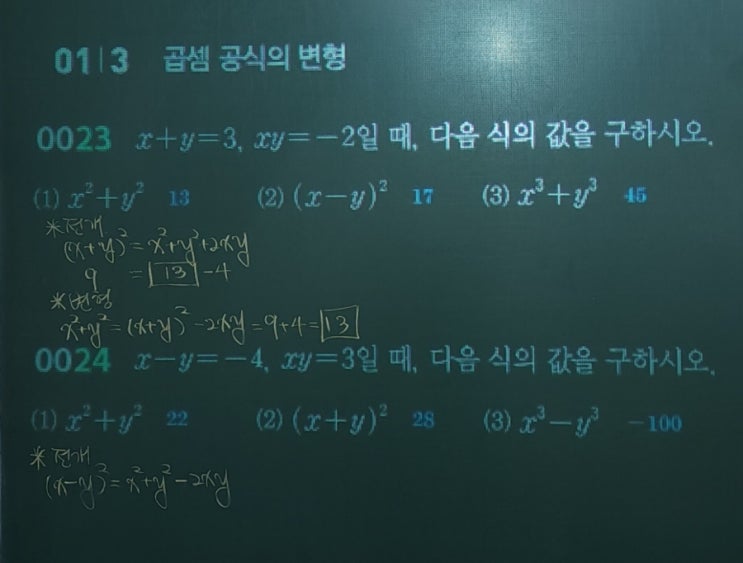 01|3 곱셈 공식의 변형
0023 x+y=3, xy=-2일 때, 다음 식의 값을 구하시오.
(1) x²+y² 13 (2) (x-y)² 17 (3) x³+y³ 45
*전개
(x+y)²=x²+y²+2xy
9 = 13 -4
*변형
x²+y²=(x+y)²-2xy=9+4=13
0024 x-y=-4, xy=3일 때, 다음 식의 값을 구하시오.
(1) x²+y² 22 (2) (x+y)² 28 (3) x³-y³ -100
*전개
(x-y)²=x²+y²-2xy